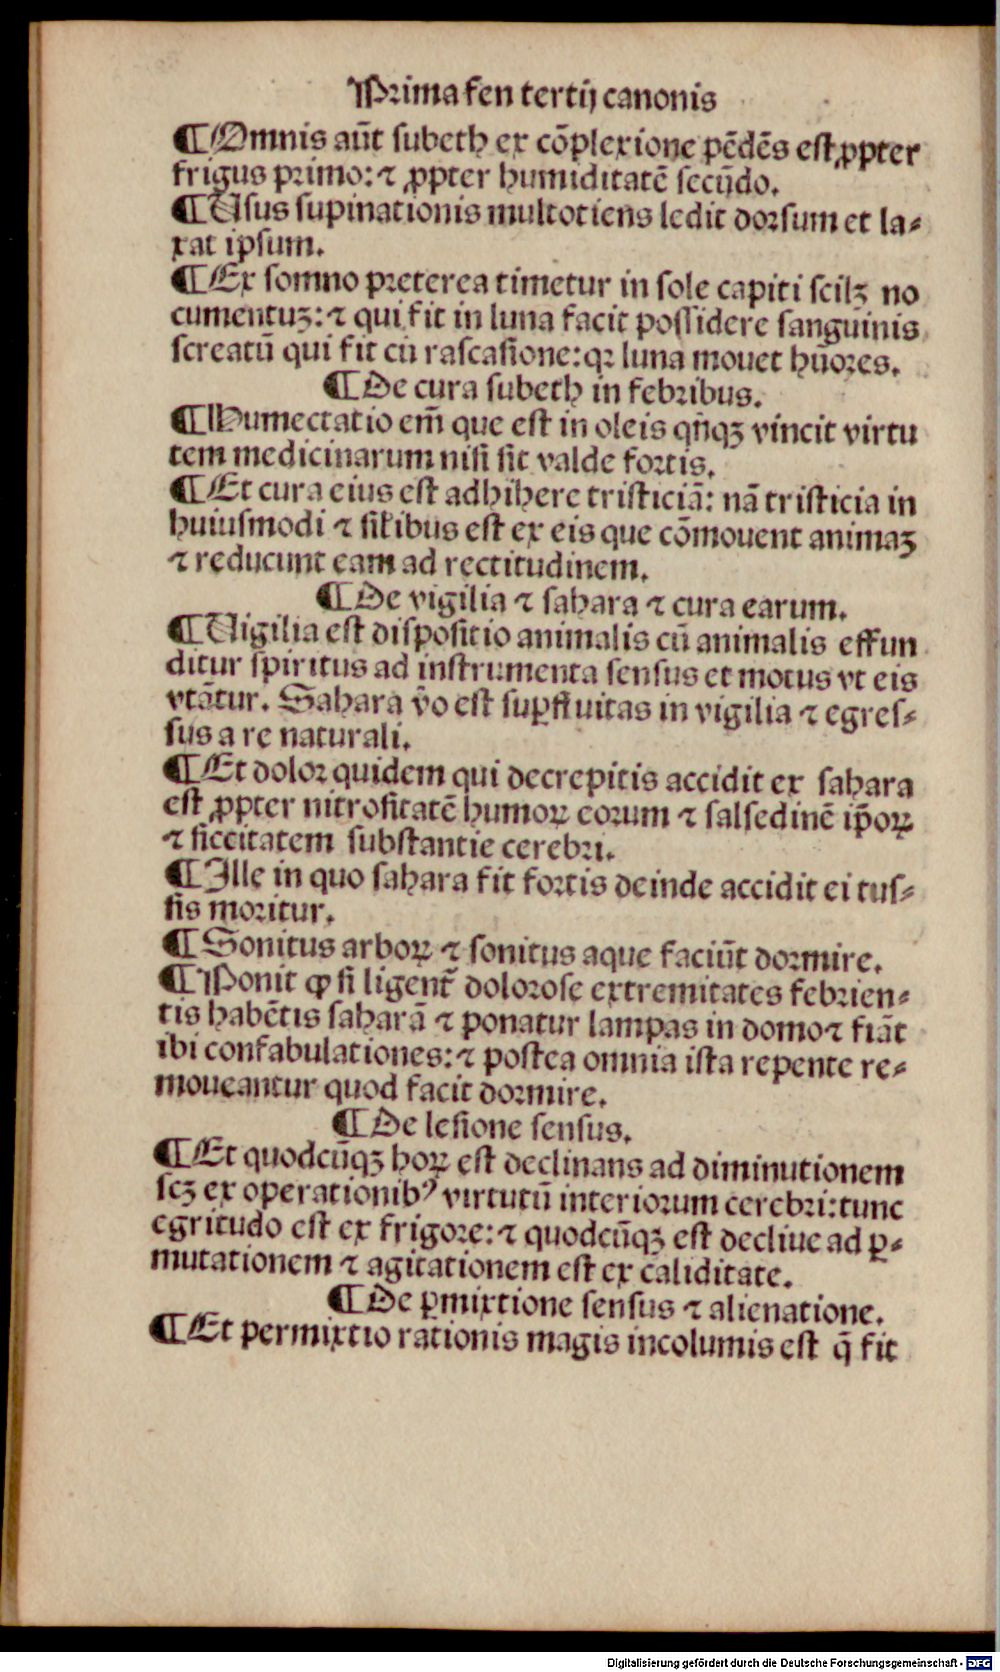 Prima fen tertij canonis
¶Omnis aūt subeth ex cōplexione pēdēs est ꝓpter
frigus primo: ⁊ ꝓpter humiditatē secūdo.
¶Usus supinationis multotiens ledit dorsum et la⸗
xat ipsum.
¶Ex somno preterea timetur in sole capiti scilꝫ no
cumentuꝫ: ⁊ qui fit in luna facit possidere sanguinis
screatū qui fit cū rascasione: qꝛ luna mouet hūores.
¶De cura subeth in febribus.
¶Humectatio em̄ que est in oleis qn̄qꝫ vincit virtu
tem medicinarum nisi sit valde fortis.
¶Et cura eius est adhibere tristiciā: nā tristicia in
huiusmodi ⁊ silibus est ex eis que cōmouent animaꝫ
⁊ reducunt eam ad rectitudinem.
¶De vigilia ⁊ sahara ⁊ cura earum.
¶Uigilia est dispositio animalis cū animalis effun
ditur spiritus ad instrumenta sensus et motus vt eis
vtātur. Sahara v̄o est suꝑfluitas in vigilia ⁊ egres⸗
sus a re naturali.
¶Et dolor quidem qui decrepitis accidit ex sahara
est ꝓpter nitrositatē humoꝝ eorum ⁊ salsedinē ip̄oꝝ
⁊ siccitatem substantie cerebri.
¶Ille in quo sahara fit fortis deinde accidit ei tus⸗
sis moritur.
¶Sonitus arboꝝ ⁊ sonitus aque faciūt dormire.
¶Ponit ꝙ si ligent᷑ dolorose extremitates febrien⸗
tis habētis saharā ⁊ ponatur lampas in domo ⁊ fiāt
ibi confabulationes: ⁊ postea omnia ista repente re⸗
moueantur quod facit dormire.
¶De lesione sensus.
¶Et quodcūqꝫ hoꝝ est declinans ad diminutionem
scꝫ ex operationibꝰ virtutū interiorum cerebri: tunc
egritudo est ex frigore: ⁊ quodcūqꝫ est decliue ad ꝑ⸗
mutationem ⁊ agitationem est ex caliditate.
¶De ꝑmixtione sensus ⁊ alienatione.
¶Et permixtio rationis magis incolumis est q̄ fit
Digitalisierung gefördert durch die Deutsche Forschungsgemeinschaft - DFG